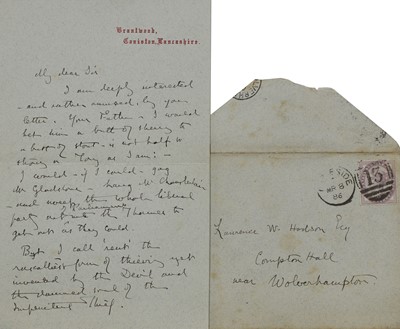 Brantwood,
Coniston, Lancashire.
My dear Sir
I am deeply interested
- and rather amused, by your
letter. Your Father - I would
bet him a butt of sherry to
a butt of stout - is not half so
strong a Tory as I am: -
I would - if I could - gag
Mr Gladstone - hang Mr Chamberlain
- and the whole liberal
party into the Thames to
get out as they could.
But I call 'rent' the
rascalliest form of thieving yet
invented by the Devil and
the damned soul of the
impenitent thief.
SIDE
MR 8
86
13
Laurence W. Hodson Esq
Compton Hall
near Wolverhampton